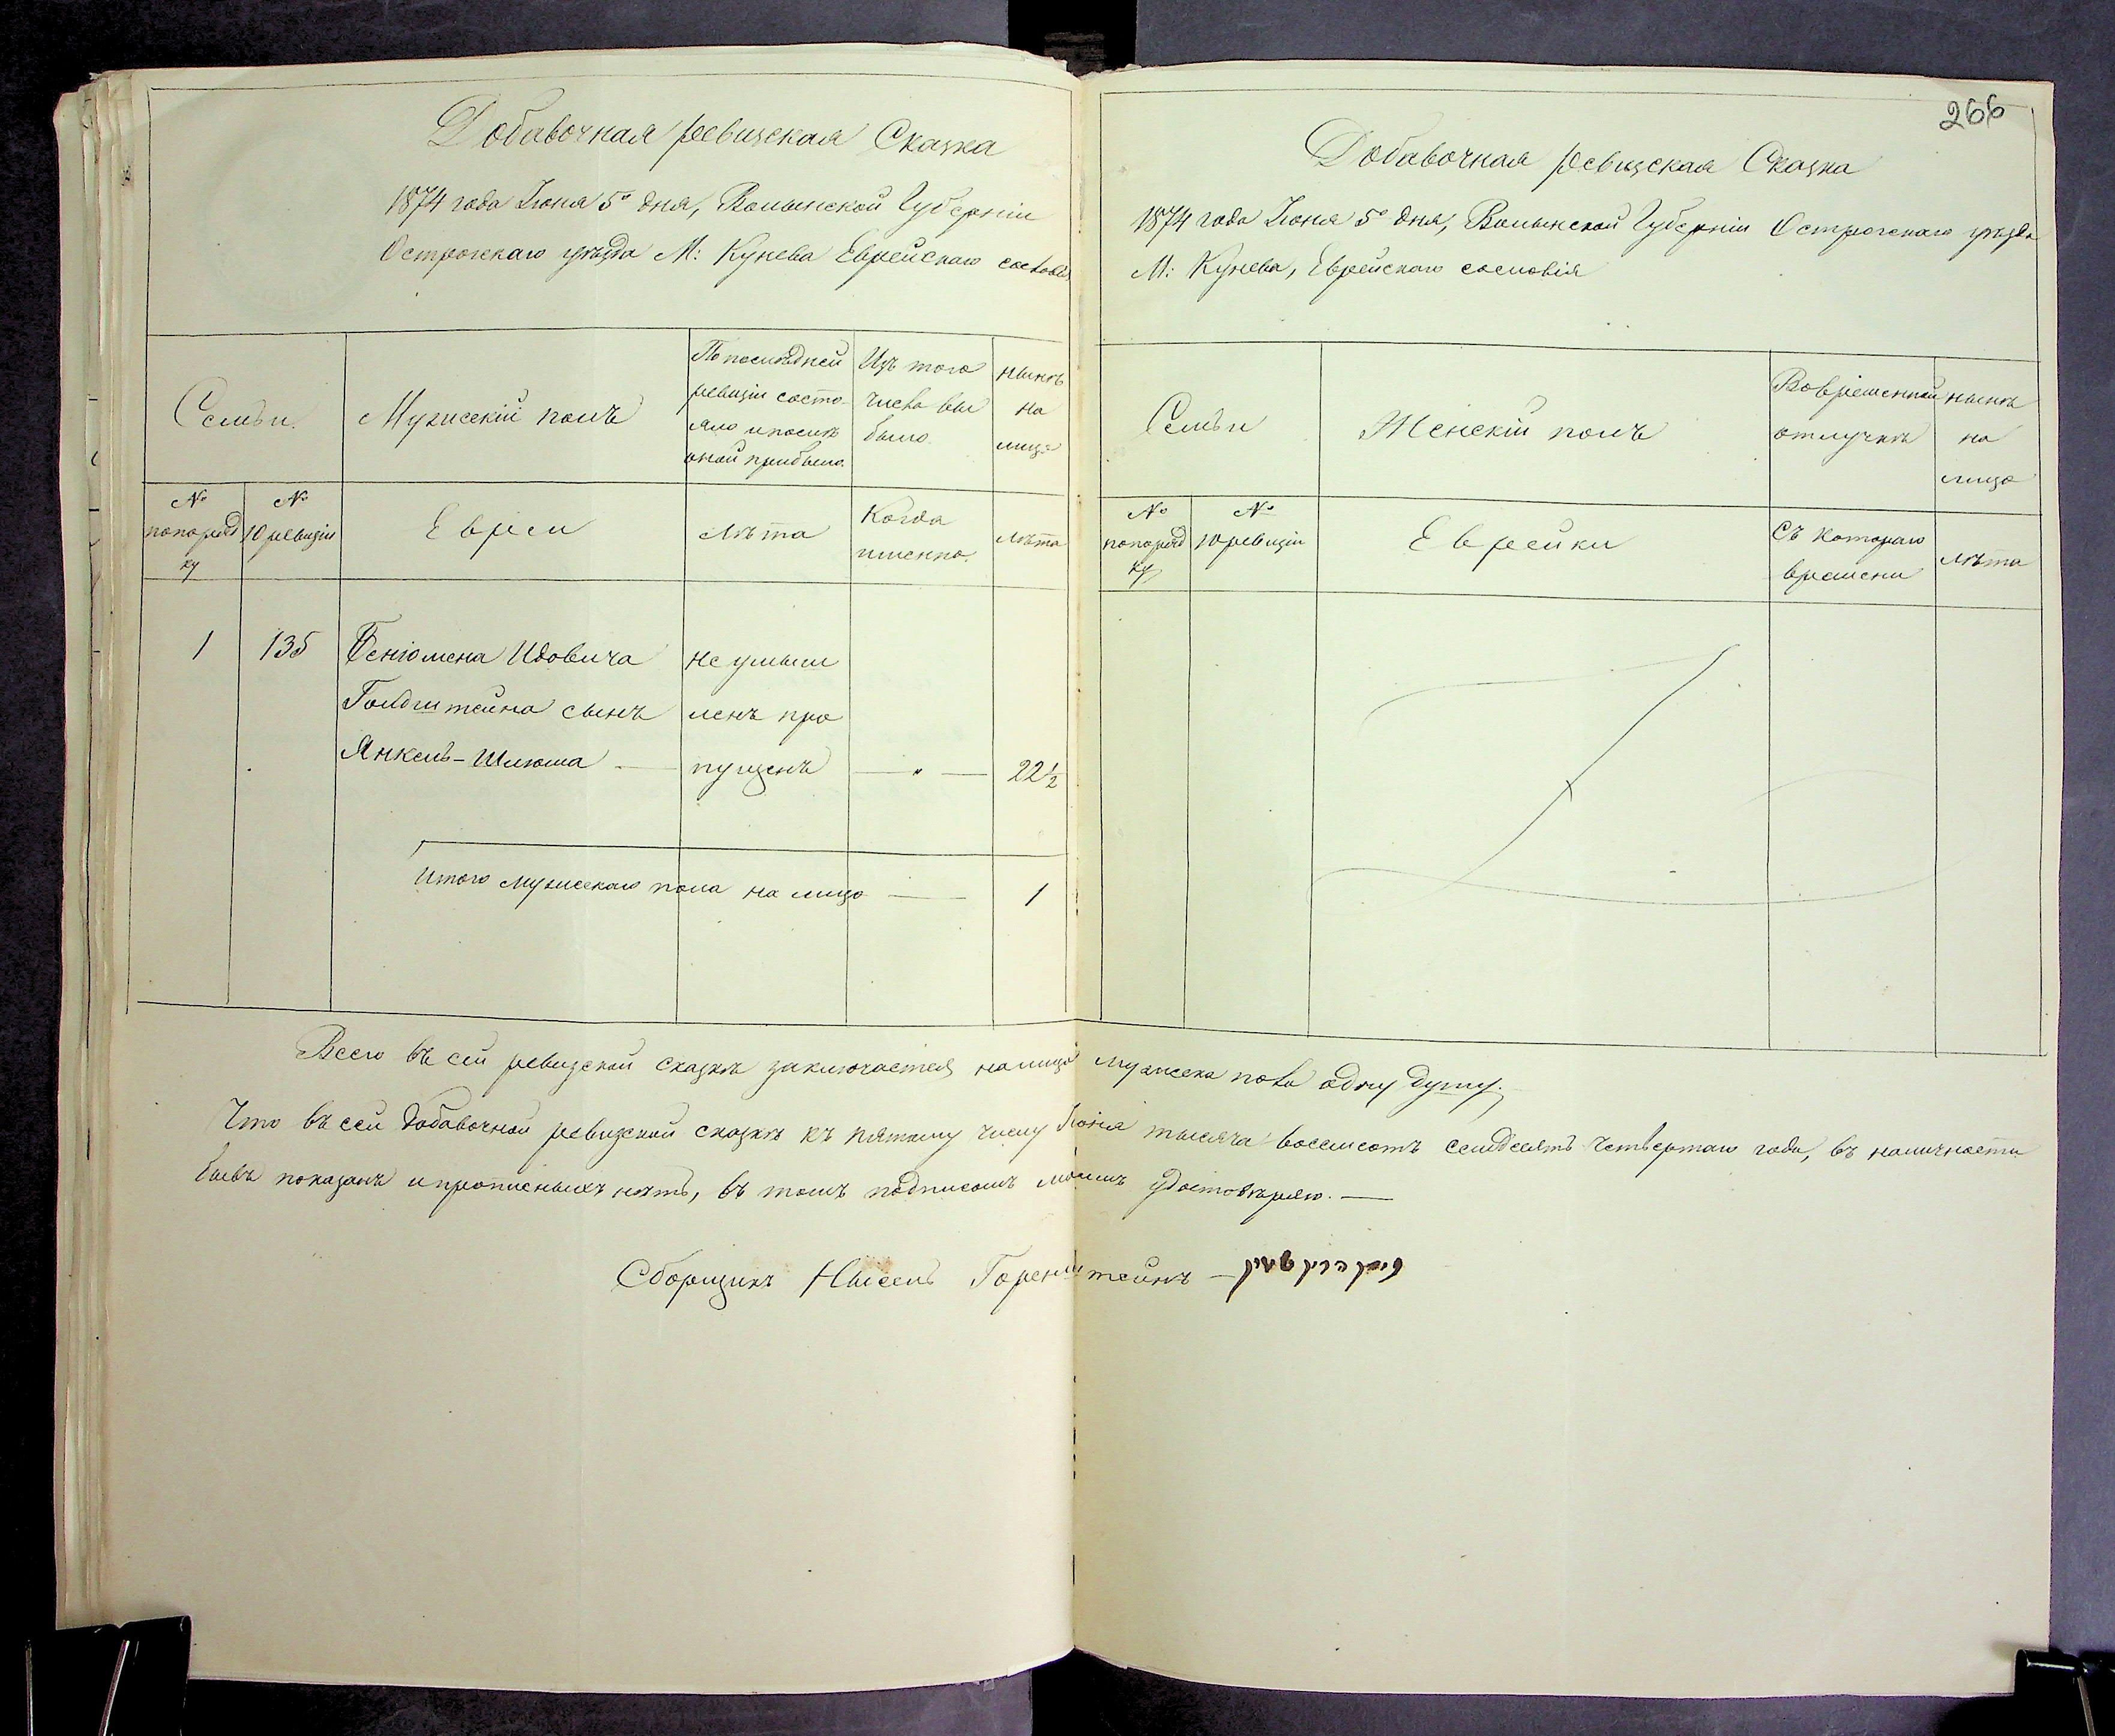 Добавочная ревизская Сказка
1874 года Іюня 5º дня, Волынской Губерніи
Острожскаго уѣзда М: Кунева Еврейскаго сословія
Семьи.
Мужескій полъ
По послѣдней
ревизіи состо-
яло и послѣ
оной прибыло.
Изъ того
числа вы
было.
нынѣ
на
лицо
№
по поряд
ку
№
10 ревизіи
Евреи
лѣта
Когда
именно.
лѣта
1
135
Бенюмена Идовича
Голдштейна сынъ
Янкель-Шлюма —
не умыш
ленъ про
пущенъ
— „ —
22½
Итого мужескаго пола на лицо —
1
266
Добавочная ревизская Сказка
1874 года Іюня 5º дня, Волынской Губерніи Острожскаго уѣзда
М: Кунева, Еврейскаго сословія
Семьи
Женскій полъ
Во временной
отлучкѣ
нынѣ
на
лицо
№
по поряд
ку
№
10 ревизіи
Еврейки
Съ котораго
времени
лѣта
Всего въ сей ревизской сказкѣ заключается на лицо мужеска пола одну душу.
Что въ сей добавочной ревизской сказкѣ къ пятому числу Іюня тысяча восемсотъ семдесятъ четвертаго года, въ наличности
весь показанъ и прописныхъ нѣтъ, въ томъ подписомъ моимъ удостовѣряю. —
Сборщикъ Нысель Горенштейнъ —